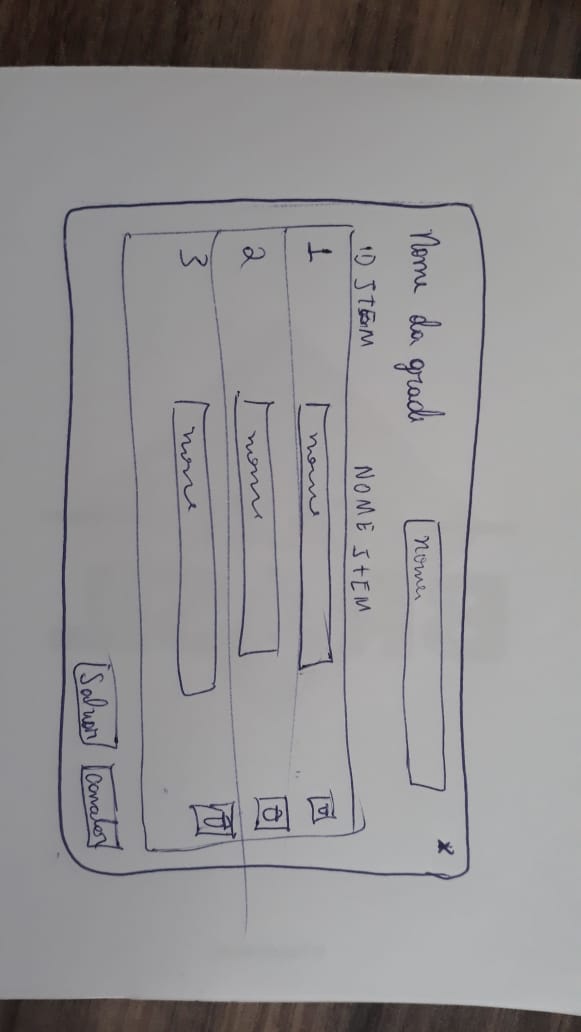 Nome da grade nome
ID ITEM NOME ITEM
1 nome
2 nome
3 nome
Salvar Cancelar